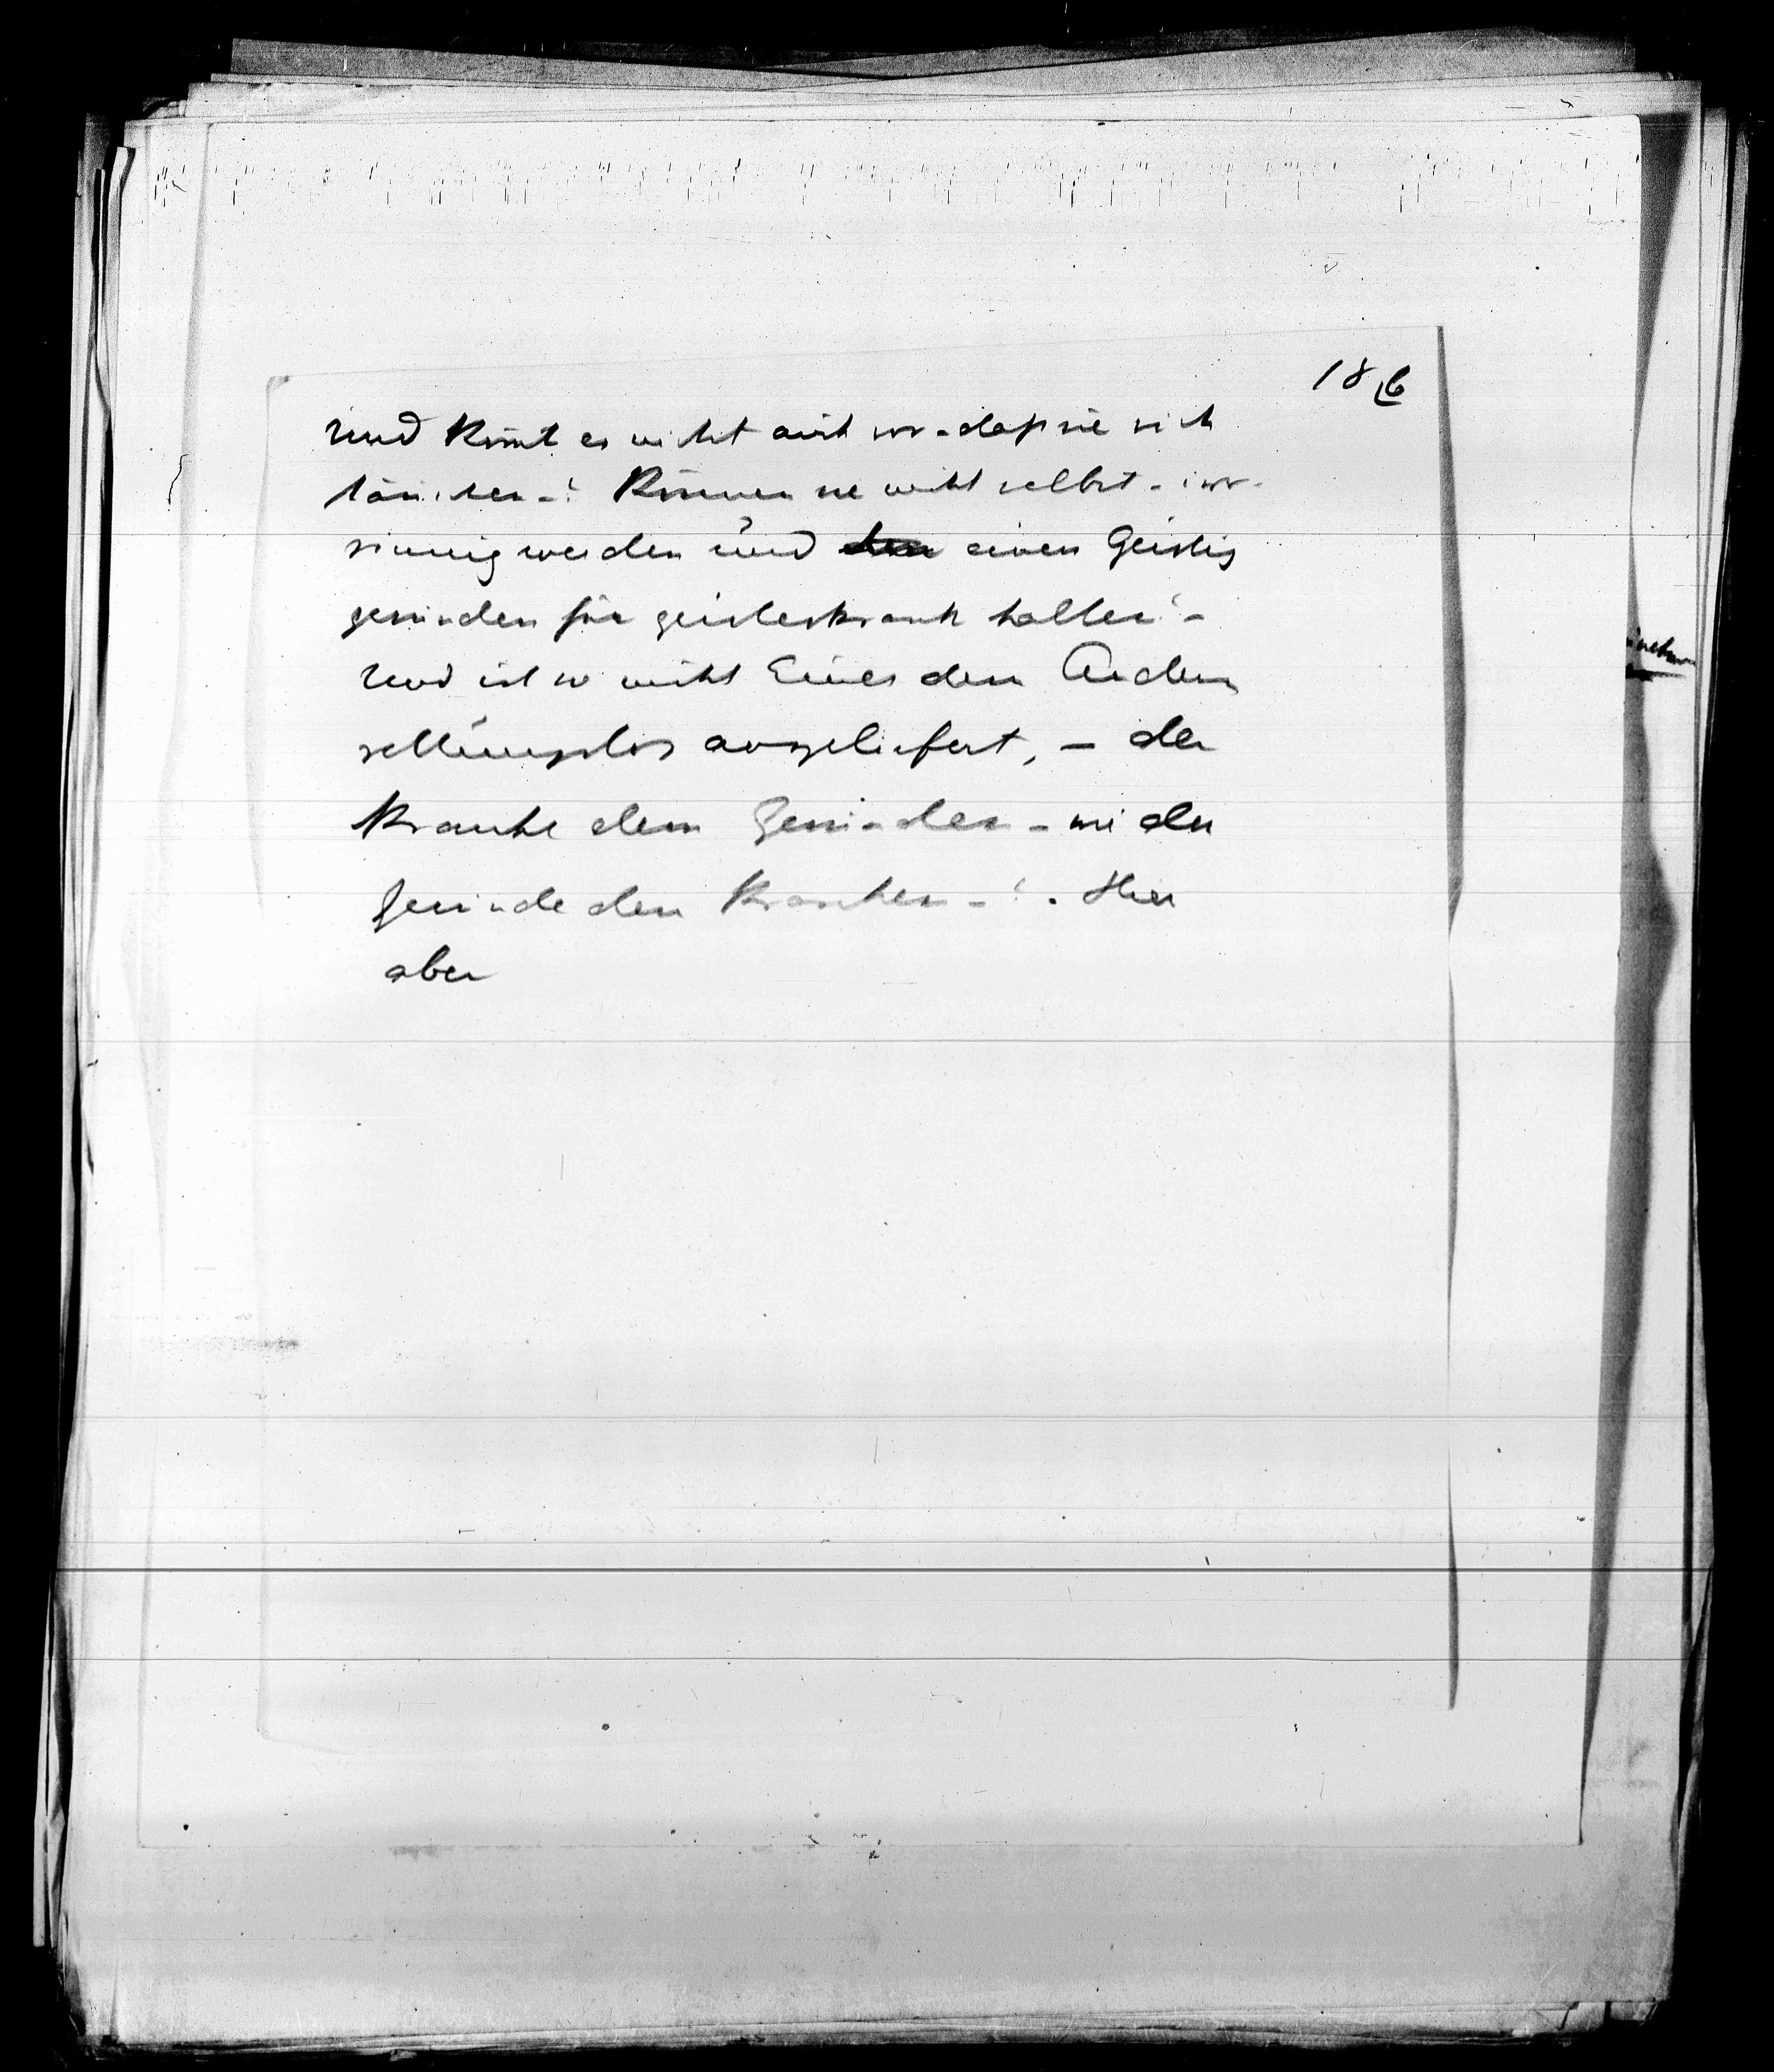 18 b
Und kommt es nicht auch vor - dass sie sich
täuschen -? Können sie nicht selbst - irr-
sinnig werden und einen Geistig
gesunden für geisteskrank halten? -
Und ist so nicht Einer dem Andern
rettungslos ausgeliefert, - der
Kranke dem Gesunden - wie der
Gesunde dem Kranken - ?. Hier
aber